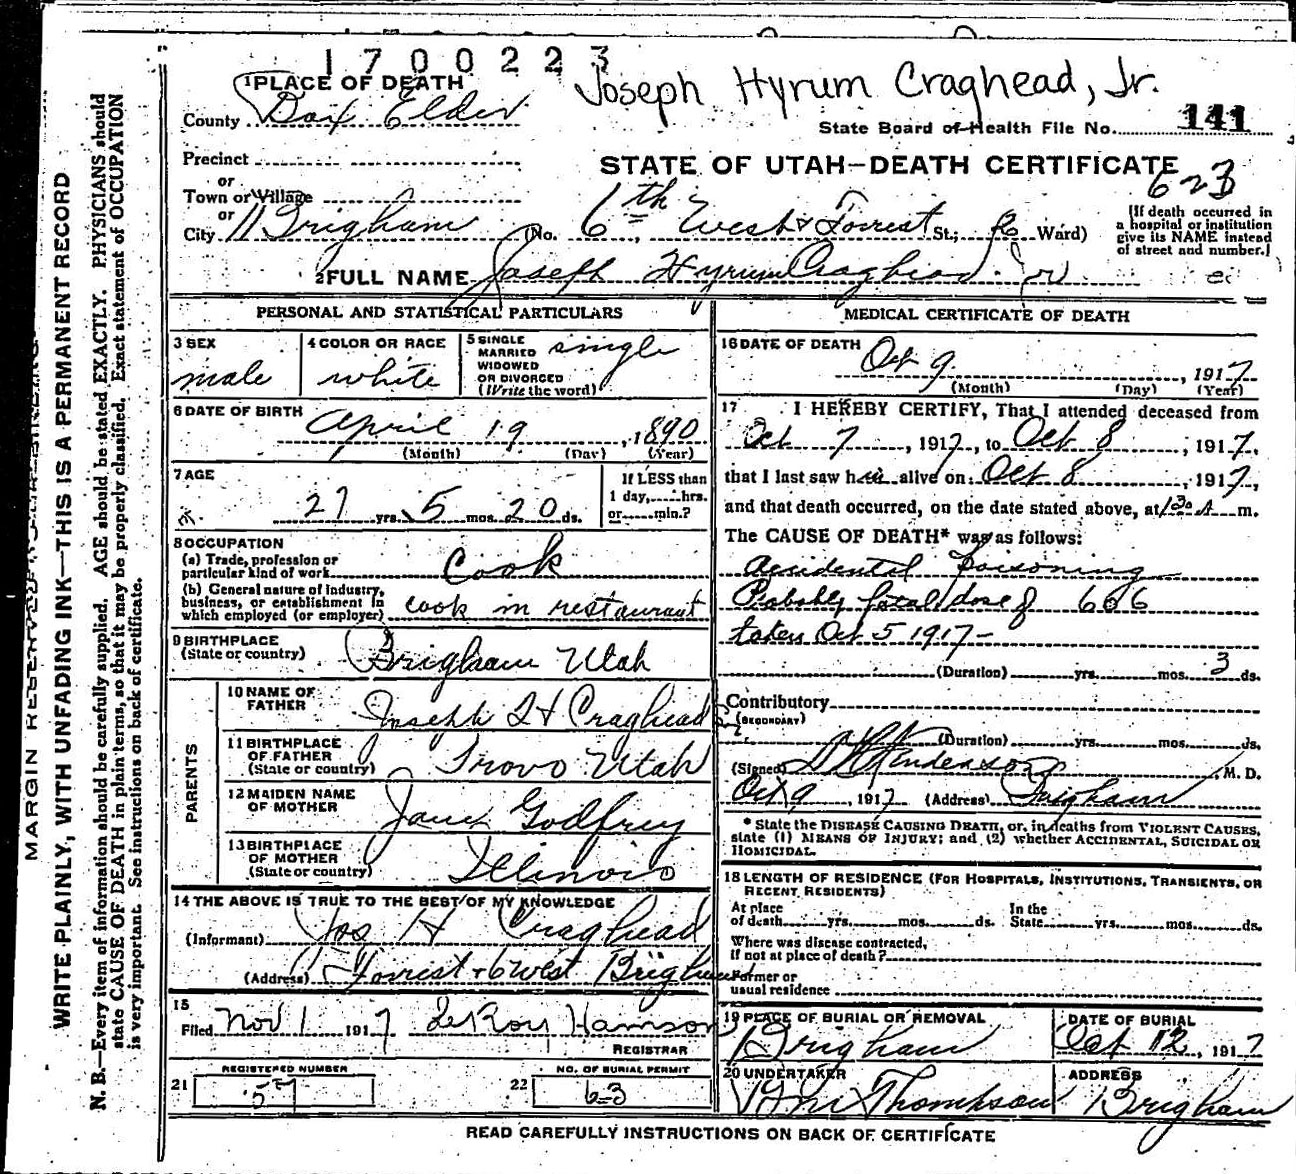 1700223
Joseph Hyrum Craghead, Jr.
1 PLACE OF DEATH
County Box Elder
State Board of Health File No. 141
Precinct
STATE OF UTAH—DEATH CERTIFICATE
623
or
Town or Village
or
City Brigham (No. 6th West & Forrest St.; Ward)
(If death occurred in a hospital or institution give its NAME instead of street and number.)
2 FULL NAME Joseph Hyrum Craghead Jr
PERSONAL AND STATISTICAL PARTICULARS
3 SEX male
4 COLOR OR RACE white
5 SINGLE MARRIED WIDOWED OR DIVORCED (Write the word) single
6 DATE OF BIRTH April 19, 1890
(Month) (Day) (Year)
7 AGE 27 yrs. 5 mos. 20 ds.
If LESS than 1 day,....hrs. or....min.?
8 OCCUPATION
(a) Trade, profession or particular kind of work Cook
(b) General nature of industry, business, or establishment in which employed (or employer) cook in restaurant
9 BIRTHPLACE (State or country) Brigham Utah
PARENTS
10 NAME OF FATHER Joseph H Craghead
11 BIRTHPLACE OF FATHER (State or country) Provo Utah
12 MAIDEN NAME OF MOTHER Jane Godfrey
13 BIRTHPLACE OF MOTHER (State or country) Illinois
14 THE ABOVE IS TRUE TO THE BEST OF MY KNOWLEDGE
(Informant) Jos H Craghead
(Address) Forrest & 6 West Brigham
15
Filed Nov 1 1917 LeRoy Hamson
REGISTRAR
REGISTERED NUMBER
21 57
NO. OF BURIAL PERMIT
22 63
MEDICAL CERTIFICATE OF DEATH
16 DATE OF DEATH Oct 9, 1917
(Month) (Day) (Year)
17 I HEREBY CERTIFY, That I attended deceased from
Oct 7, 1917, to Oct 8, 1917,
that I last saw him alive on Oct 8, 1917,
and that death occurred, on the date stated above, at 130 A m.
The CAUSE OF DEATH* was as follows:
Accidental Poisoning
Probably fatal dose of 606
taken Oct 5 1917-
(Duration) yrs. mos. 3 ds.
Contributory
(SECONDARY)
(Duration) yrs. mos. ds.
(Signed) M. D.
Oct 9, 1917 (Address) Brigham
* State the DISEASE CAUSING DEATH, or, in deaths from VIOLENT CAUSES,
state (1) MEANS OF INJURY; and (2) whether ACCIDENTAL, SUICIDAL OR
HOMICIDAL.
18 LENGTH OF RESIDENCE (FOR HOSPITALS, INSTITUTIONS, TRANSIENTS, OR
RECENT RESIDENTS)
At place of death yrs. mos. ds. In the State yrs. mos. ds.
Where was disease contracted,
if not at place of death?
Former or
usual residence
19 PLACE OF BURIAL OR REMOVAL Brigham
DATE OF BURIAL Oct 12, 1917
20 UNDERTAKER Thompson
ADDRESS Brigham
READ CAREFULLY INSTRUCTIONS ON BACK OF CERTIFICATE
WRITE PLAINLY, WITH UNFADING INK—THIS IS A PERMANENT RECORD
N. B.—Every item of information should be carefully supplied. AGE should be stated EXACTLY. PHYSICIANS should
state CAUSE OF DEATH in plain terms, so that it may be properly classified. Exact statement of OCCUPATION
is very important. See instructions on back of certificate.